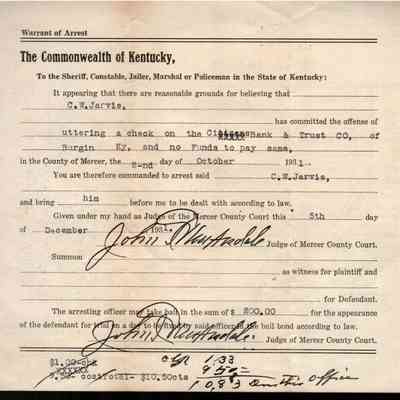 Warrant of Arrest
The Commonwealth of Kentucky,
To the Sheriff, Constable, Jailer, Marshal or Policeman in the State of Kentucky:
It appearing that there are reasonable grounds for believing that
C.W.Jarvis,
has committed the offense of
uttering a check on the Citizens Bank & Trust CO, of
Burgin Ky, and no Funds to pay same,
in the County of Mercer, the 2-nd day of October 1931.
You are therefore commanded to arrest said C.W.Jarvis,
and bring him before me to be dealt with according to law.
Given under my hand as Judge of the Mercer County Court this 5th day
of December 1931.
Judge of Mercer County Court.
Summon
as witness for plaintiff and
for Defendant.
The arresting officer may take bail in the sum of $ 200.00 for the appearance
of the defendant for trial on a day to be fixed by said officer in the bail bond according to law.
Judge of Mercer County Court.
$1.00
costTotal- $10.50cts
1.33
9 50
10,83 on this office